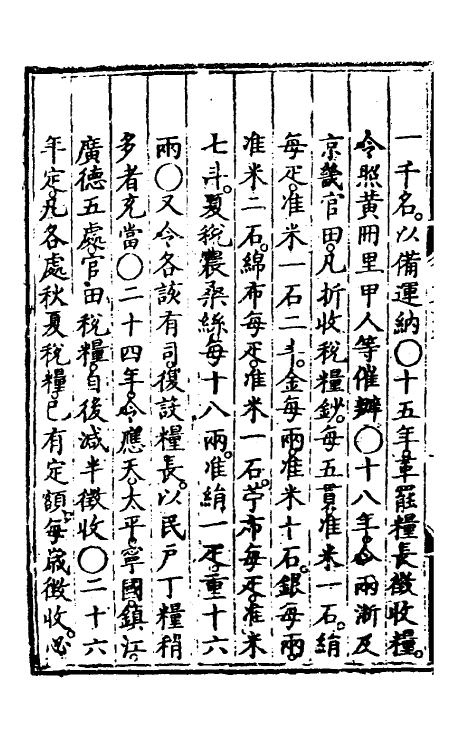 一千名。以備運納〇十五年。革罷糧長徵收糧。
令照黃冊里甲人等催辦〇十八年。令兩浙及
京畿官田。凡折收稅糧鈔。每五貫。准米一石。絹
每疋。准米一石二斗。金每兩。准米十石。銀每兩。
准米二石。綿布每疋。准米一石。苧布每疋。准米
七斗。夏稅農桑絲每十八兩。准絹一疋。重十六
兩〇又令各該有司。復設糧長。以民戶丁糧稍
多者充當〇二十四年。令應天。太平。寧國。鎮江。
廣德五處。官田稅糧。自後減半徵收〇二十六
年定。凡各處秋夏稅糧。已有定額。每歲徵收。必